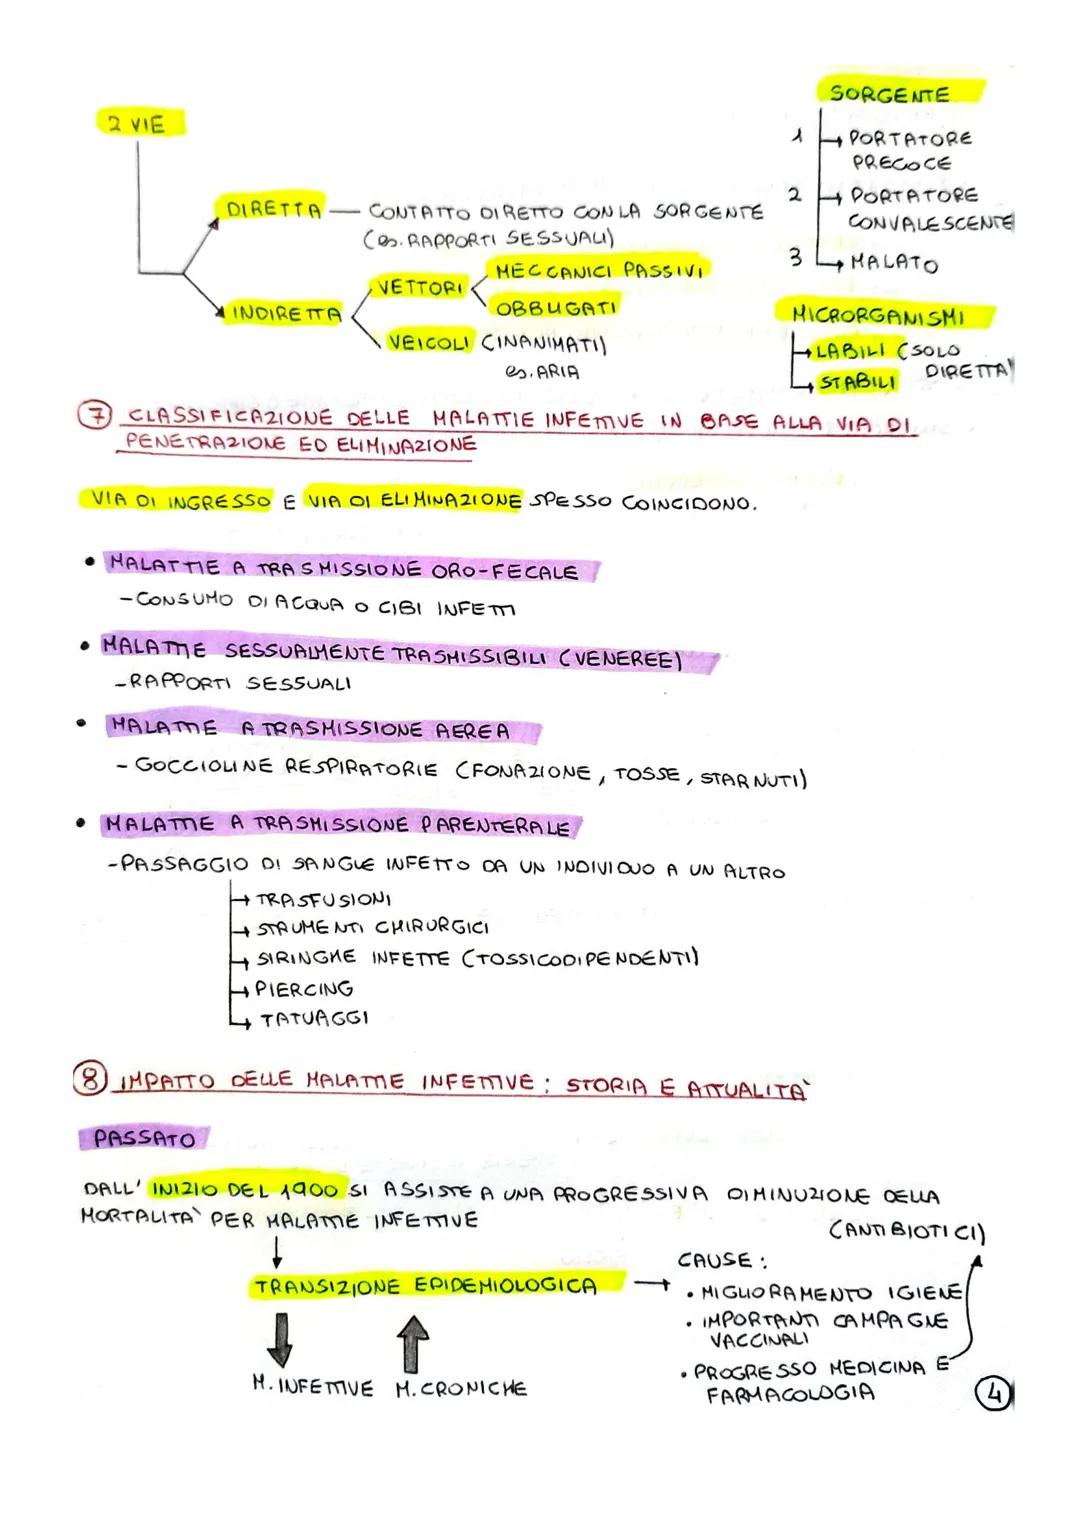 2 VIE
DIRETTA — CONTATTO DIRETTO CON LA SORGENTE
(es. RAPPORTI SESSUALI)
INDIRETTA
VETTORI
MECCANICI PASSIVI
OBBLIGATI
VEICOLI (INANIMATI)
es. ARIA
SORGENTE
1 → PORTATORE
PRECOCE
2 → PORTATORE
CONVALESCENTE
3 → MALATO
MICRORGANISMI
→ LABILI (SOLO
DIRETTA)
→ STABILI
7 CLASSIFICAZIONE DELLE MALATTIE INFETTIVE IN BASE ALLA VIA DI
PENETRAZIONE ED ELIMINAZIONE
VIA DI INGRESSO E VIA DI ELIMINAZIONE SPESSO COINCIDONO.
• MALATTIE A TRASMISSIONE ORO-FECALE
- CONSUMO DI ACQUA O CIBI INFETTI
• MALATTIE SESSUALMENTE TRASMISSIBILI (VENEREE)
- RAPPORTI SESSUALI
• MALATTIE A TRASMISSIONE AEREA
- GOCCIOLINE RESPIRATORIE (FONAZIONE, TOSSE, STARNUTI)
• MALATTIE A TRASMISSIONE PARENTERALE
- PASSAGGIO DI SANGUE INFETTO DA UN INDIVIDUO A UN ALTRO
→ TRASFUSIONI
→ STRUMENTI CHIRURGICI
→ SIRINGHE INFETTE (TOSSICODIPENDENTI)
→ PIERCING
→ TATUAGGI
8 IMPATTO DELLE MALATTIE INFETTIVE: STORIA E ATTUALITÀ
PASSATO
DALL' INIZIO DEL 1900 SI ASSISTE A UNA PROGRESSIVA DIMINUZIONE DELLA
MORTALITÀ PER MALATTIE INFETTIVE
TRANSIZIONE EPIDEMIOLOGICA →
M. INFETTIVE M. CRONICHE
(ANTIBIOTICI)
CAUSE:
• MIGLIORAMENTO IGIENE
• IMPORTANTI CAMPAGNE
VACCINALI
• PROGRESSO MEDICINA E
FARMACOLOGIA
4